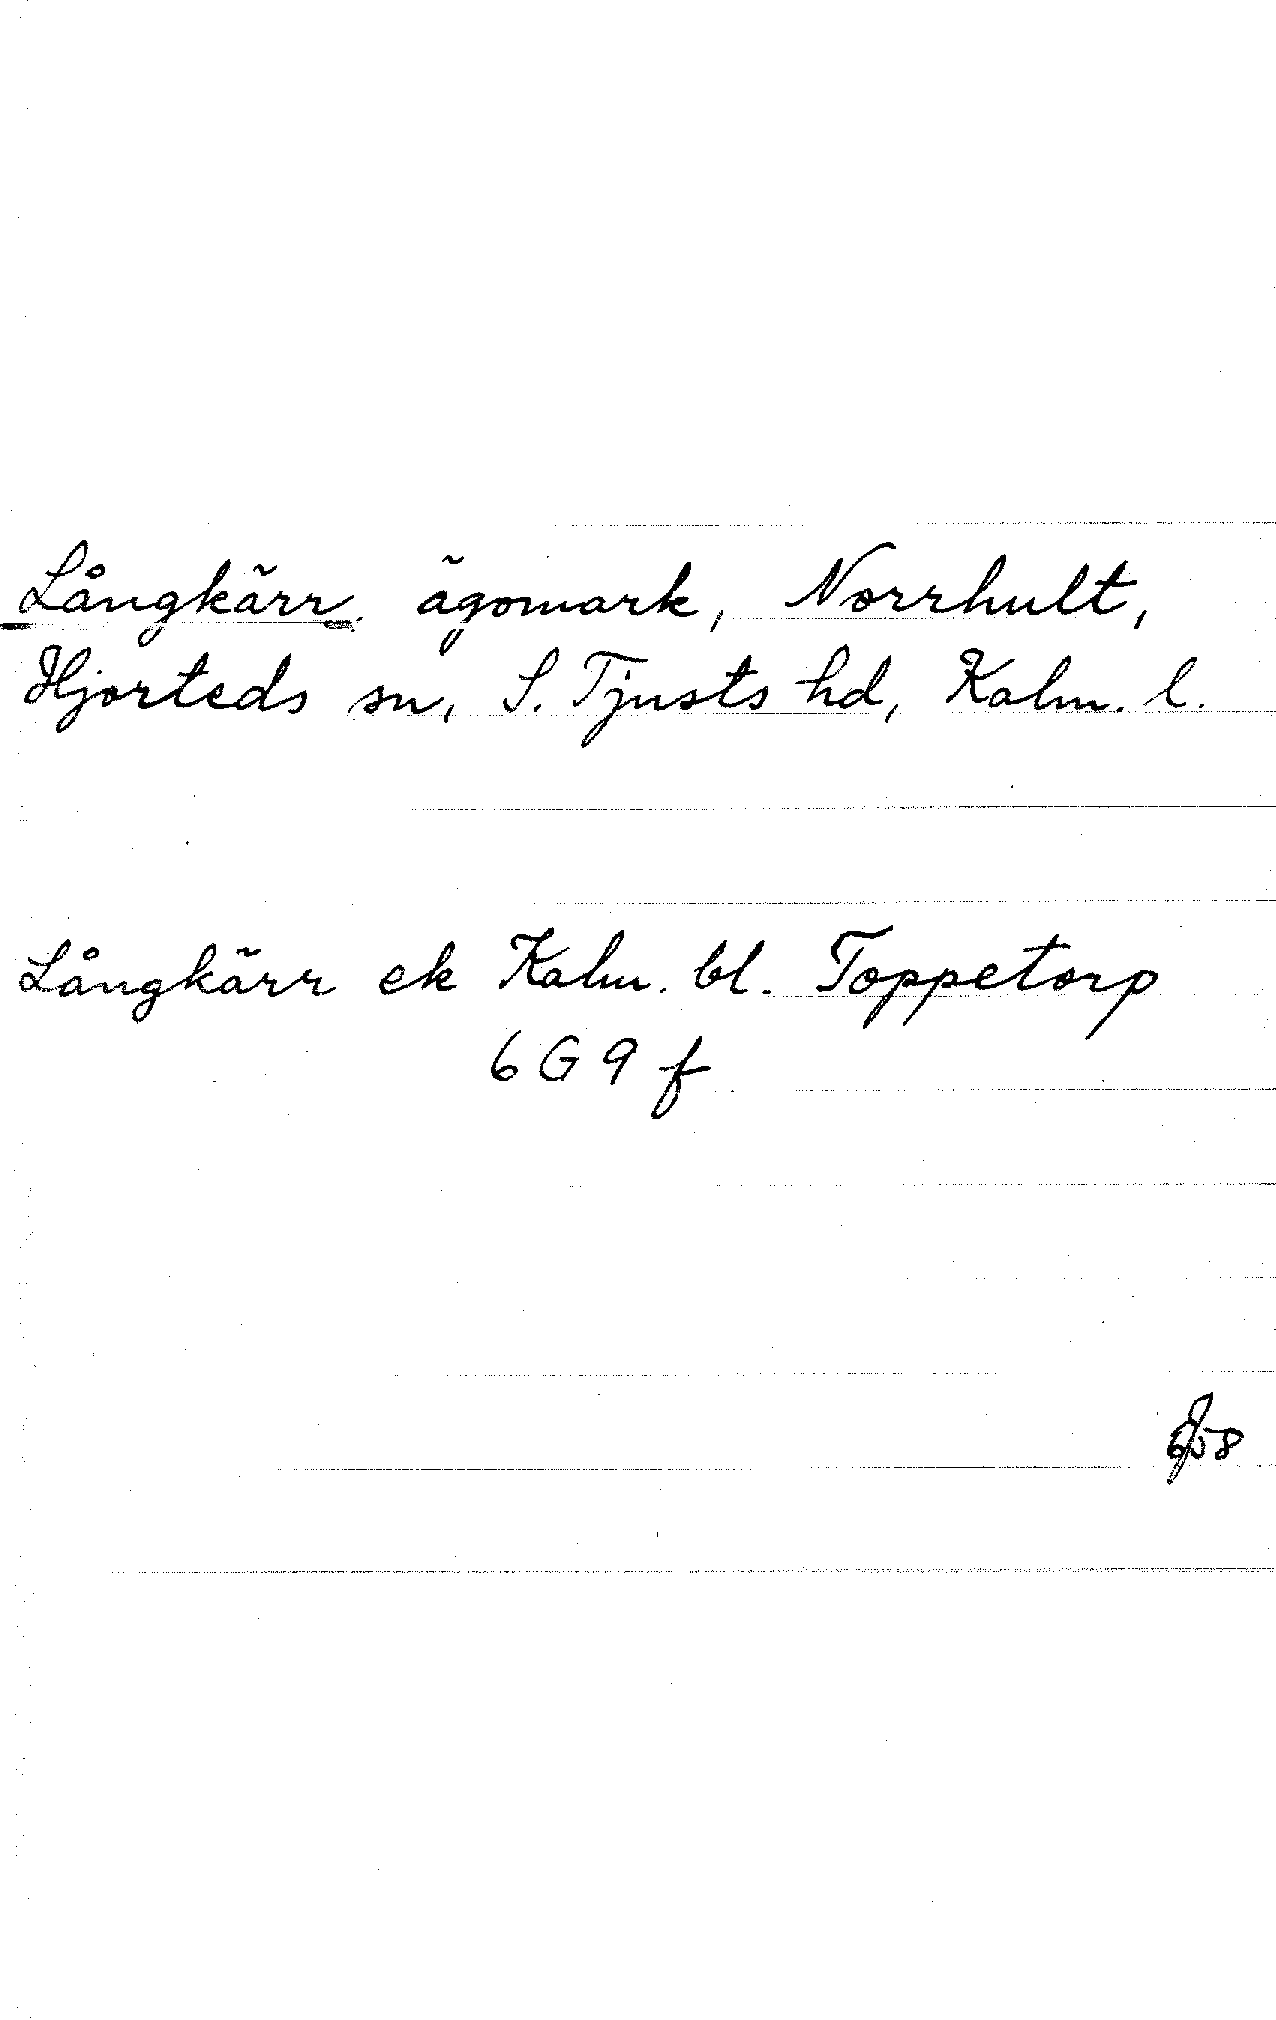 Långkärr, ägomark, Norrhult,
Hjorteds sn, S. Tjusts hd, Kalm. l.
Långkärr ek Kalm. bl. Toppetorp
6 G 9 f